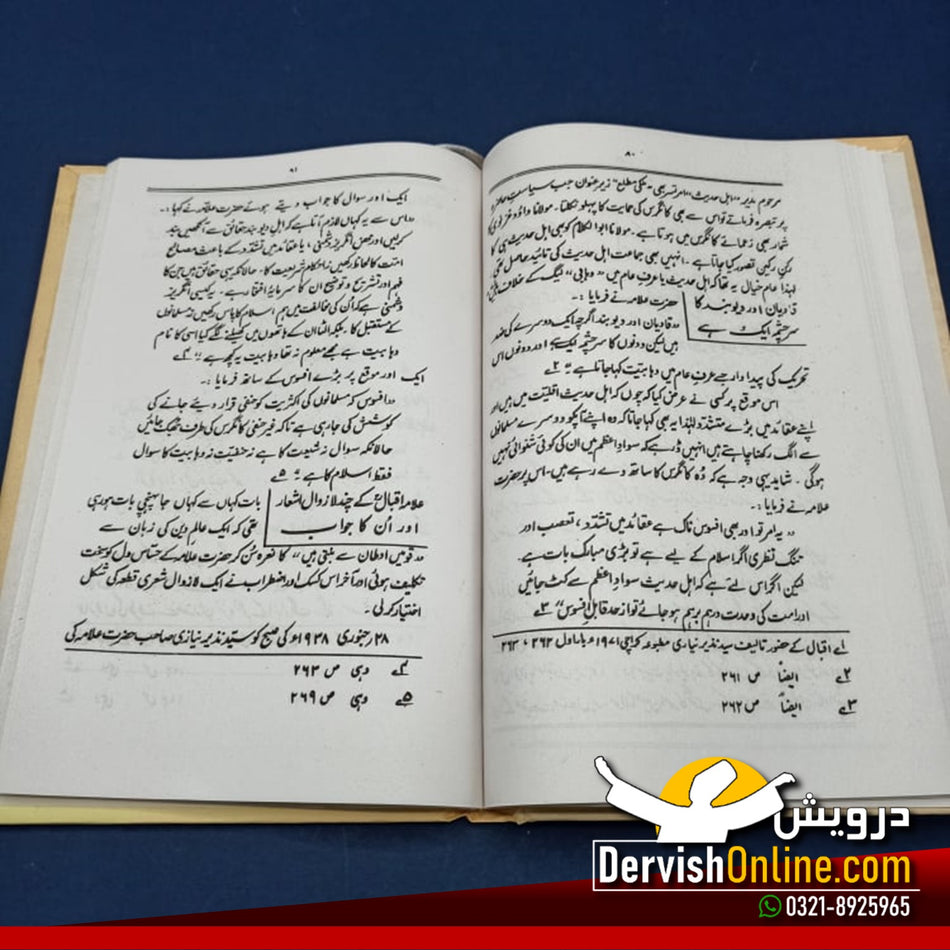 ۸۰
مرحوم مدیر "اہل حدیث" امرتسر بھی - مکی مطلع" زیر عنوان جب سیاست حاضرہ
پر تبصرہ فرماتے تو اس سے بھی کانگرس کی حمایت کا پہلو نکلتا۔ مولانا داؤد غزنوی کا
شمار بھی زعمائے کانگرس میں ہوتا ہے۔ مولانا ابوالکلام کو بھی اہل حدیث ہی کا
رکن رکین تصور کیا جاتا ہے۔ انہیں بھی جماعت اہل حدیث کی تائید حاصل تھی۔
لہٰذا عام خیال یہ تھا کہ اہل حدیث یا عرف عام میں "وہابی" لیگ کے خلاف ہیں
قادیان اور دیوبند کا
سرچشمہ ایک ہے
حضرت علامہ نے فرمایا :-
"قادیان اور دیوبند اگرچہ ایک دوسرے کی ضد
ہیں لیکن دونوں کا سرچشمہ ایک ہے اور دونوں اس
تحریک کی پیداوار جسے عرف عام میں وہابیت کہا جاتا ہے" ۲ے
اس موقع پر کسی نے عرض کیا کہ چوں کہ اہل حدیث اقلیت میں ہیں اور
اپنے عقائد میں بڑے متشدد لہٰذا یہ بھی کہا جاتا کہ وہ اپنے آپ کو دوسرے مسلمانوں
سے الگ رکھنا چاہتے ہیں انہیں ڈر ہے کہ سواد اعظم میں ان کی کوئی شنوائی نہیں
ہوگی۔ شاید یہی وجہ ہے کہ وہ کانگرس کا ساتھ دے رہے ہیں۔ اس پر حضرت
علامہ نے فرمایا :-
"یہ امر تو اور بھی افسوس ناک ہے عقائد میں تشدد، تعصب اور
تنگ نظری اگر اسلام کے لیے ہے تو بڑی مبارک بات ہے
لیکن اگر اس لیے ہے کہ اہل حدیث سواد اعظم سے کٹ جائیں
اور امت کی وحدت درہم برہم ہو جائے تو از حد قابل افسوس" ۳ے
۱ے اقبال کے حضور تالیف سید نذیر نیازی مطبوعہ کراچی ۱۹۷۱ء بار اول ۲۶۲، ۲۶۳
۲ے ایضاً ص ۲۶۱
۳ے ایضاً ص ۲۶۲
۸۱
ایک اور سوال کا جواب دیتے ہوئے حضرت علامہ نے کہا :-
"اس سے یہ کہاں لازم آتا ہے کہ اہل دیوبند حقائق سے آنکھیں بند
کرلیں اور محض انگریز دشمنی، یا عقائد میں تشدد کے باعث مصالح
امت کا لحاظ رکھیں نہ احکام شریعت کا۔ حالانکہ یہی حقائق ہیں جن کا
فہم اور تشریح و توضیح ان کا سرمایۂ افتخار ہے۔ یہ کیسی انگریز
دشمنی ہے کہ اُن کی مخالفت میں ہم اسلام کا پاس رکھیں نہ مسلمانوں
کے مستقبل کا۔ بلکہ الٹا ان کے ہاتھوں میں کھیلنے لگے کیا اسی کا نام
وہابیت ہے مجھے معلوم نہ تھا وہابیت یہ کچھ ہے" ۴ے
ایک اور موقع پر بڑے افسوس کے ساتھ فرمایا :-
"افسوس کہ مسلمانوں کی اکثریت کو حنفی قرار دیئے جانے کی
کوشش کی جارہی ہے تاکہ غیر حنفی کانگرس کی طرف جھک جائیں
حالانکہ سوال نہ شیعوت کا ہے نہ حنفیت نہ وہابیت کا سوال
فقط اسلام کا ہے" ۵ے
علامہ اقبالؒ کے چند لازوال اشعار
اور اُن کا جواب
بات کہاں سے کہاں جا پہنچی بات ہورہی
تھی کہ ایک عالم دین کی زبان سے
"قومیں اوطان سے بنتی ہیں" کا نعرہ سُن کر حضرت علامہ کے حساس دل کو سخت
تکلیف ہوئی اور آخر اس کسک اور اضطراب نے ایک لازوال شعری قطعہ کی شکل
اختیار کرلی۔
۲۸ جنوری ۱۹۳۸ء کی صبح کو سید نذیر نیازی صاحب حضرت علامہ کی
۴ے وہی ص ۲۶۳
۵ے وہی ص ۲۶۹
درویش
DervishOnline.com
0321-8925965